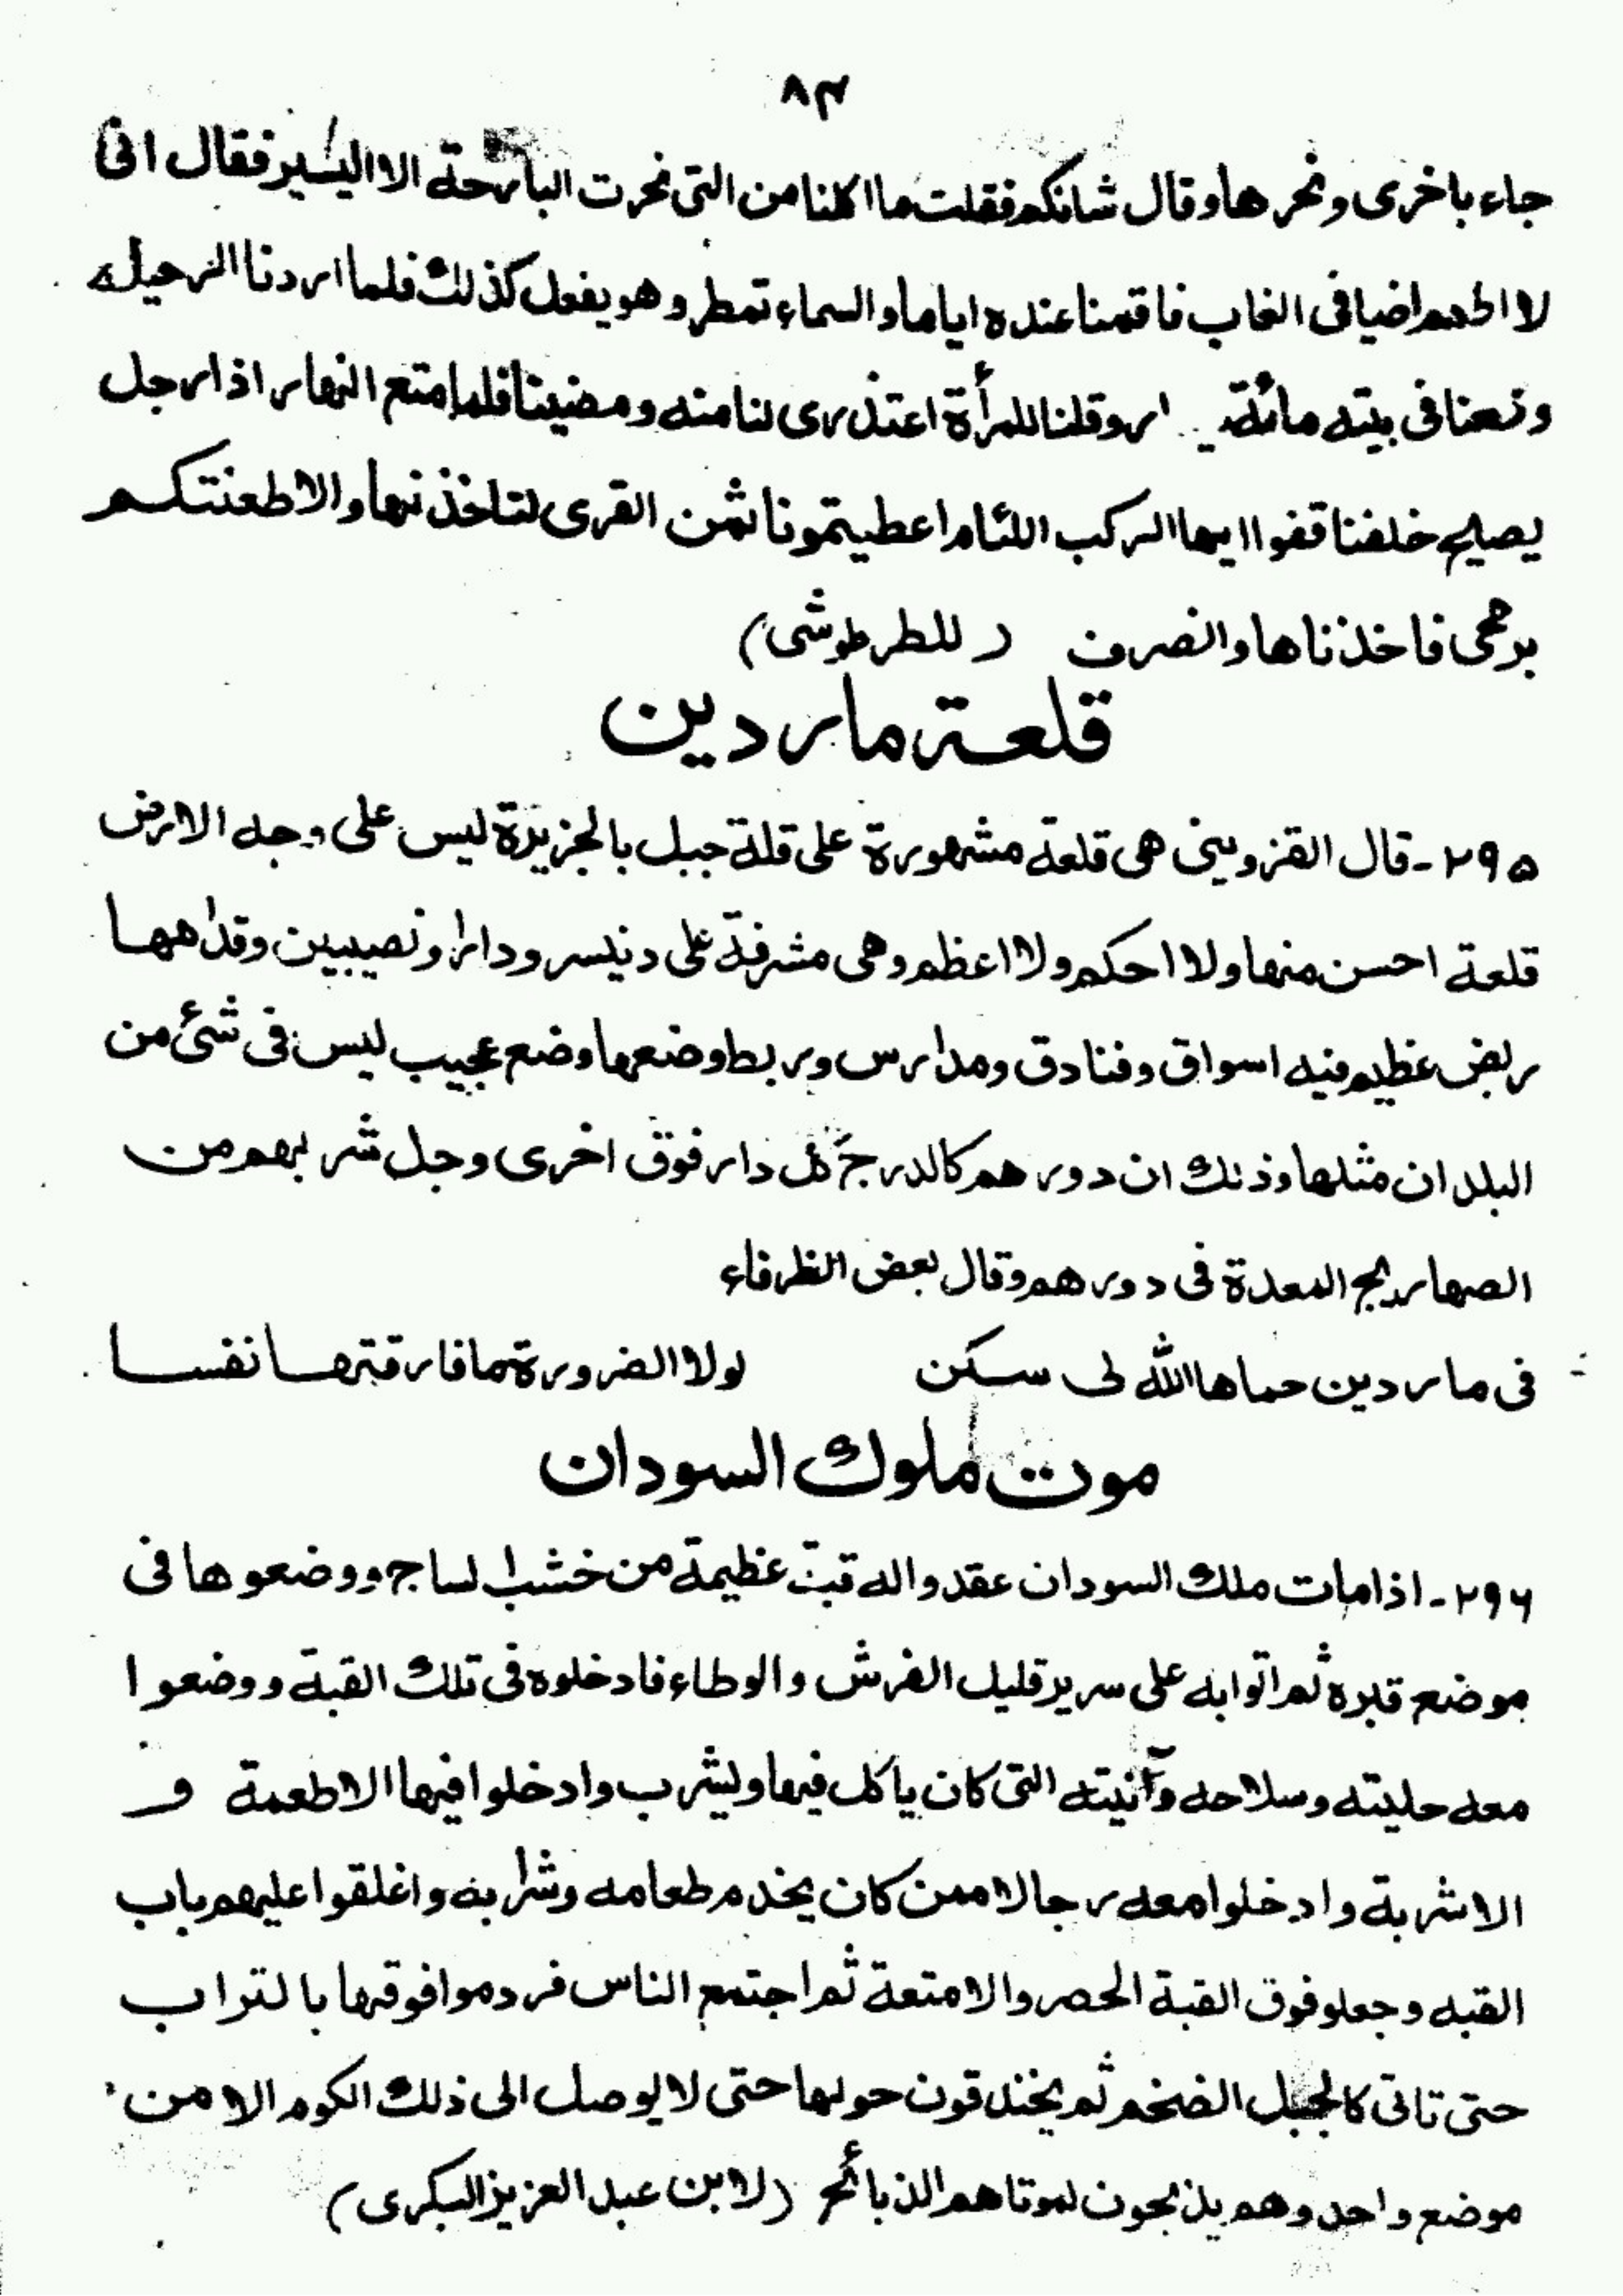 ٨٣
جاء باخرى ونحرها وقال شانكم فقلت ما اكلنا من التى نحرت البارحة الا اليسير فقال انى
لا اطعم اضيافى الغاب فاقمنا عنده اياما والسماء تمطر وهو يفعل كذلك فلما اردنا الرحيل
وضعنا فى بيته مائة ار وقلنا للمرأة اعتذرى لنا منه ومضينا فلما متع النهار اذا رجل
يصيح خلفنا قفوا ايها الركب اللئام اعطيتمونا ثمن القرى لتاخذنها والا طعنتكم
برمحى فاخذناها وانصرف ( للطرطوشى )
قلعة ماردين
٢٩٥ - قال القزوينى هى قلعة مشهورة على قلة جبل بالجزيرة ليس على وجه الارض
قلعة احسن منها ولا احكم ولا اعظم وهى مشرفة على دنيسر ودارا ونصيبين وقدامها
ربض عظيم فيه اسواق وفنادق ومدارس وربط وضعها وضع عجيب ليس فى شئ من
البلدان مثلها وذلك ان دورهم كالدرج كل دار فوق اخرى وجل شربهم من
الصهاريج المعدة فى دورهم وقال بعض الظرفاء
فى ماردين حماها الله لى سكن لولا الضرورة ما فارقتها نفسا
موت ملوك السودان
٢٩٦ - اذا مات ملك السودان عقدوا له قبة عظيمة من خشب الساج ووضعوها فى
موضع قبره ثم اتوا به على سرير قليل الفرش والوطاء فادخلوه فى تلك القبة ووضعوا
معه حليته وسلاحه وآنيته التى كان ياكل فيها ويشرب وادخلوا فيها الاطعمة و
الاشربة وادخلوا معه رجالا ممن كان يخدم طعامه وشرابه واغلقوا عليهم باب
القبه وجعلو فوق القبة الحصر والامتعة ثم اجتمع الناس فردموا فوقها بالتراب
حتى تاتى كالجبل الضخم ثم يخندقون حولها حتى لا يوصل الى ذلك الكوم الا من
موضع واحد وهم يذبحون لموتاهم الذبائح ( لابن عبد العزيز البكرى )